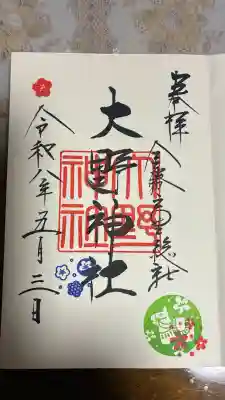 奉拝
大野神社
大野神社
令和八年五月三日